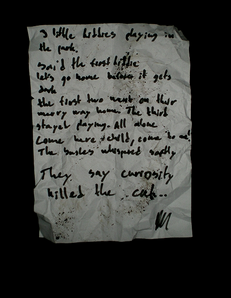 3 little kiddies playing in
the park.
Said the first kiddie
lets go home before it gets
dark
the first two went on their
merry way home. The third
stayed playing. All alone
Come here child, come to me!
The bushes whispered softly
They say curiosity
killed the cat...